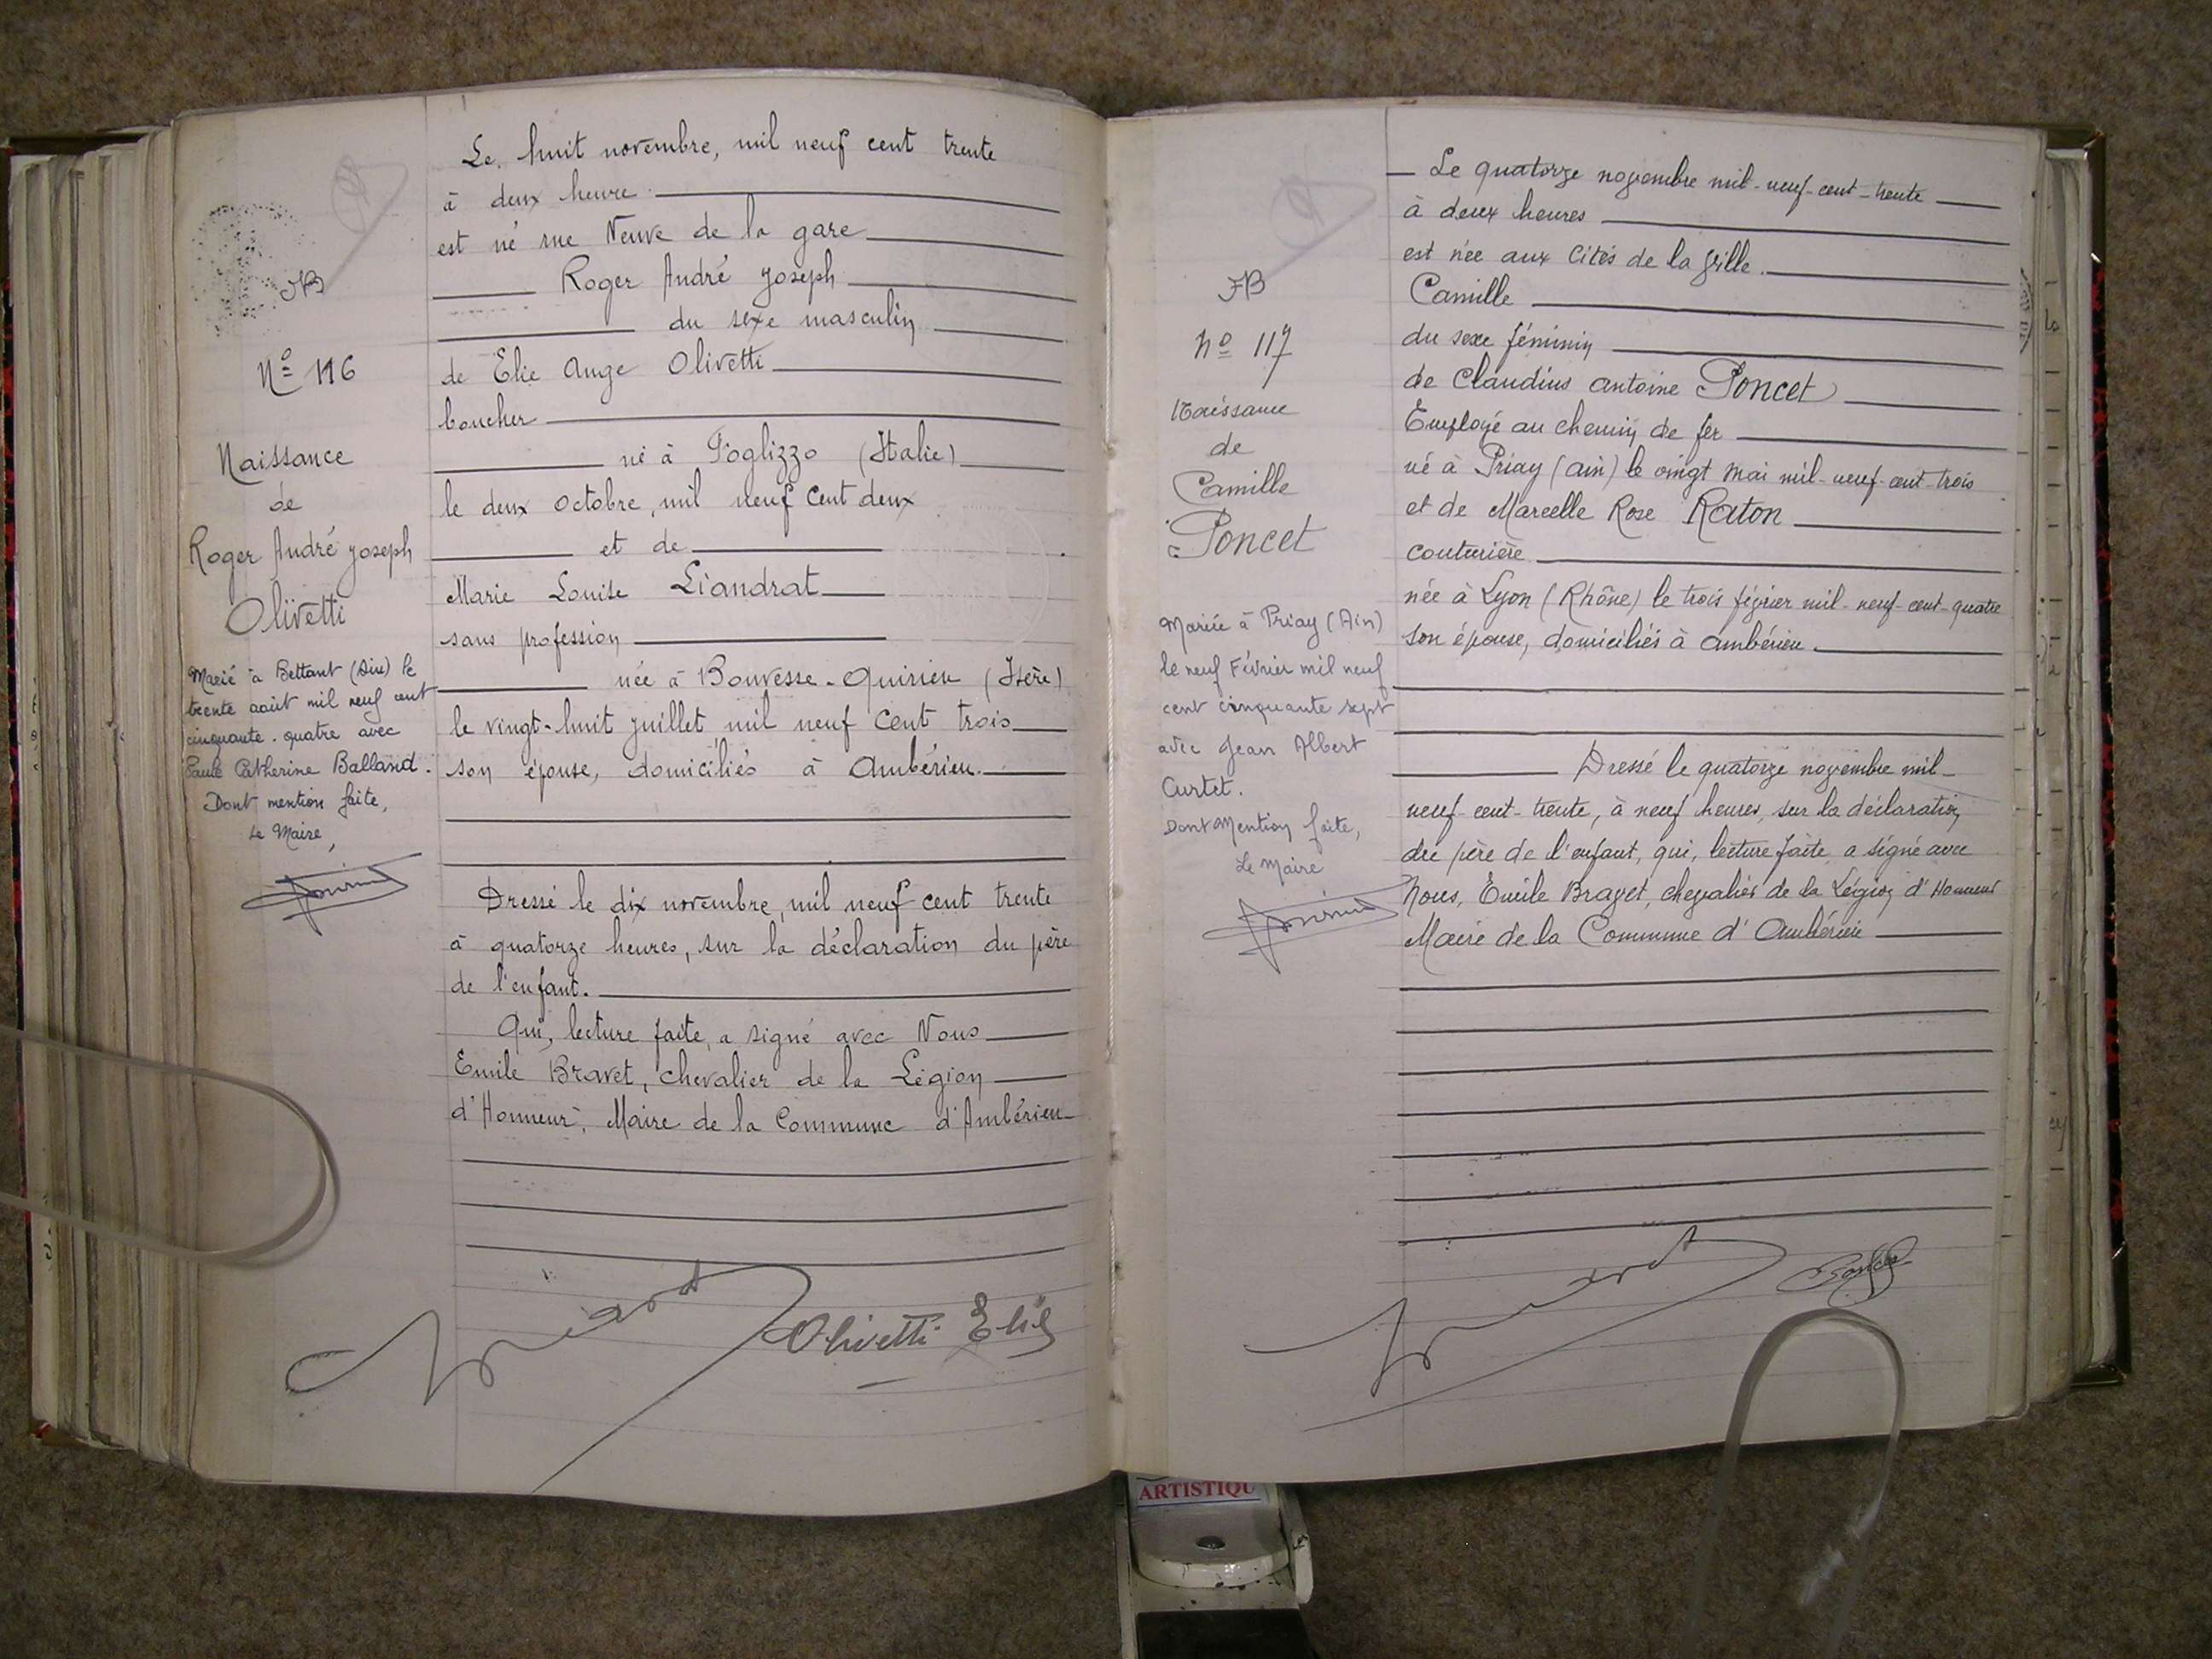 JB
Nº 116
Naissance
de
Roger André Joseph
Olivetti
Marié à Bettant (Ain) le
trente août mil neuf cent
cinquante-quatre avec
Paule Catherine Balland.
Dont mention faite,
Le Maire,
Le huit novembre, mil neuf cent trente
à deux heure
est né rue Neuve de la gare
Roger André Joseph
du sexe masculin
de Elie Ange Olivetti
boucher
né à Foglizzo (Italie)
le deux octobre, mil neuf cent deux
et de
Marie Louise Liandrat
sans profession
née à Bouvesse-Quirieu (Isère)
le vingt-huit juillet mil neuf cent trois
son épouse, domiciliés à Ambérieu.
Dressé le dix novembre, mil neuf cent trente
à quatorze heures, sur la déclaration du père
de l'enfant.
Qui, lecture faite, a signé avec Nous
Emile Bravet, chevalier de la Légion
d'Honneur, Maire de la Commune d'Ambérieu
Olivetti Elie
JB
Nº 117
Naissance
de
Camille
Poncet
Mariée à Priay (Ain)
le neuf Février mil neuf
cent cinquante sept
avec Jean Albert
Curtet.
Dont Mention faite,
Le Maire
Le quatorze novembre mil-neuf-cent-trente
à deux heures
est née aux Cités de la grille.
Camille
du sexe féminin
de Claudius Antoine Poncet
Employé au chemin de fer
né à Priay (Ain) le vingt mai mil-neuf-cent-trois
et de Marcelle Rose Raton
couturière
née à Lyon (Rhône) le trois février mil-neuf-cent-quatre
son épouse, domiciliés à Ambérieu.
Dressé le quatorze novembre mil-
neuf-cent-trente, à neuf heures, sur la déclaration
du père de l'enfant, qui, lecture faite, a signé avec
Nous, Emile Bravet, chevalier de la Légion d'Honneur
Maire de la Commune d'Ambérieu
ARTISTIQU